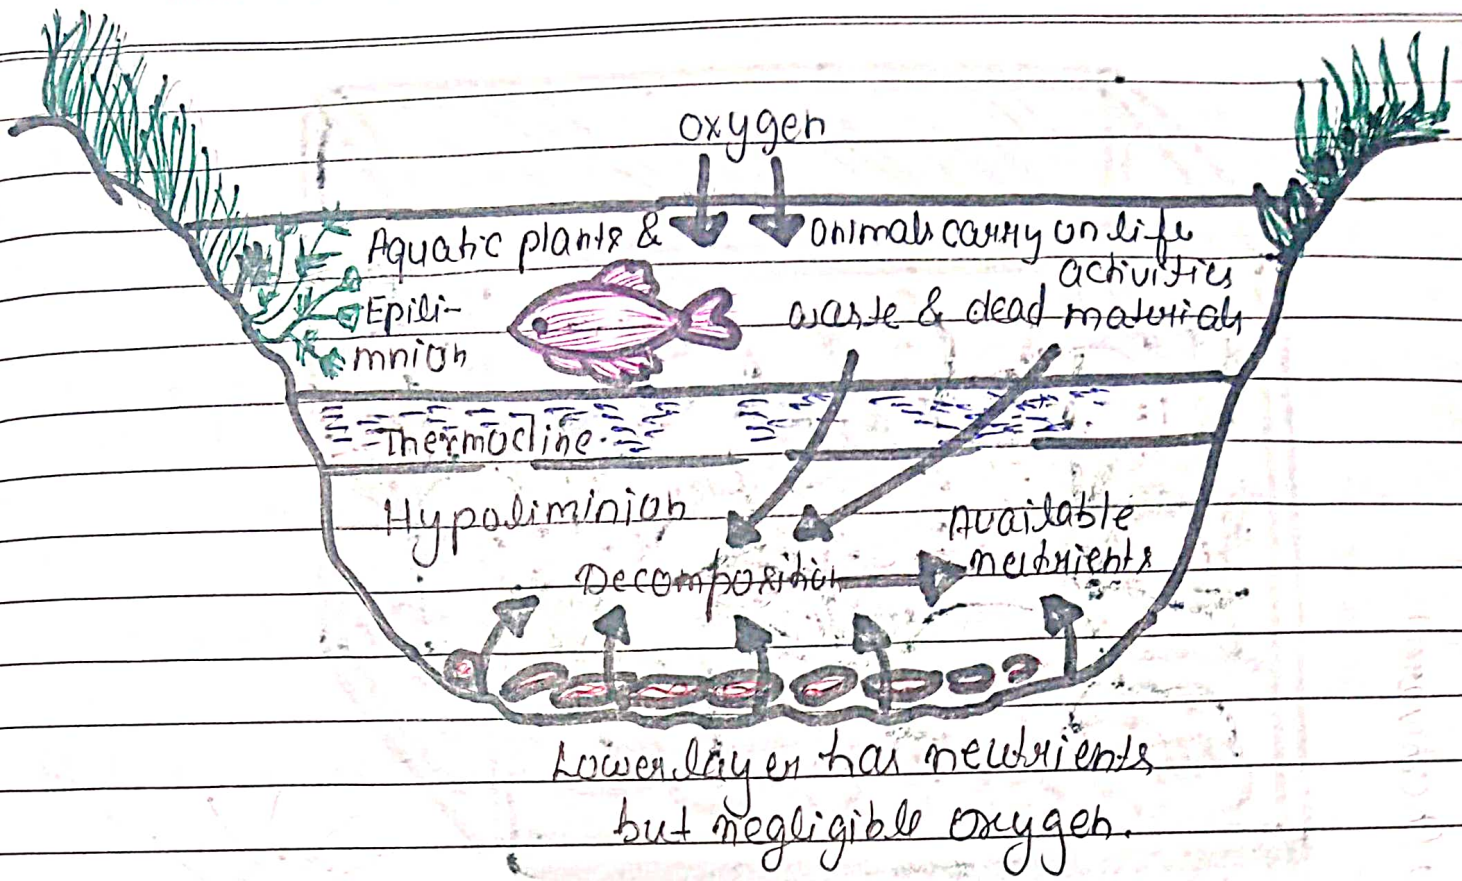 oxygen
Aquatic plants & animals carry on life
activities
Epili-
mnion
waste & dead materials
Thermocline.
Hypoliminion
Available
neutrients
Decomposition
Lower layer has neutrients
but negligible oxygen.